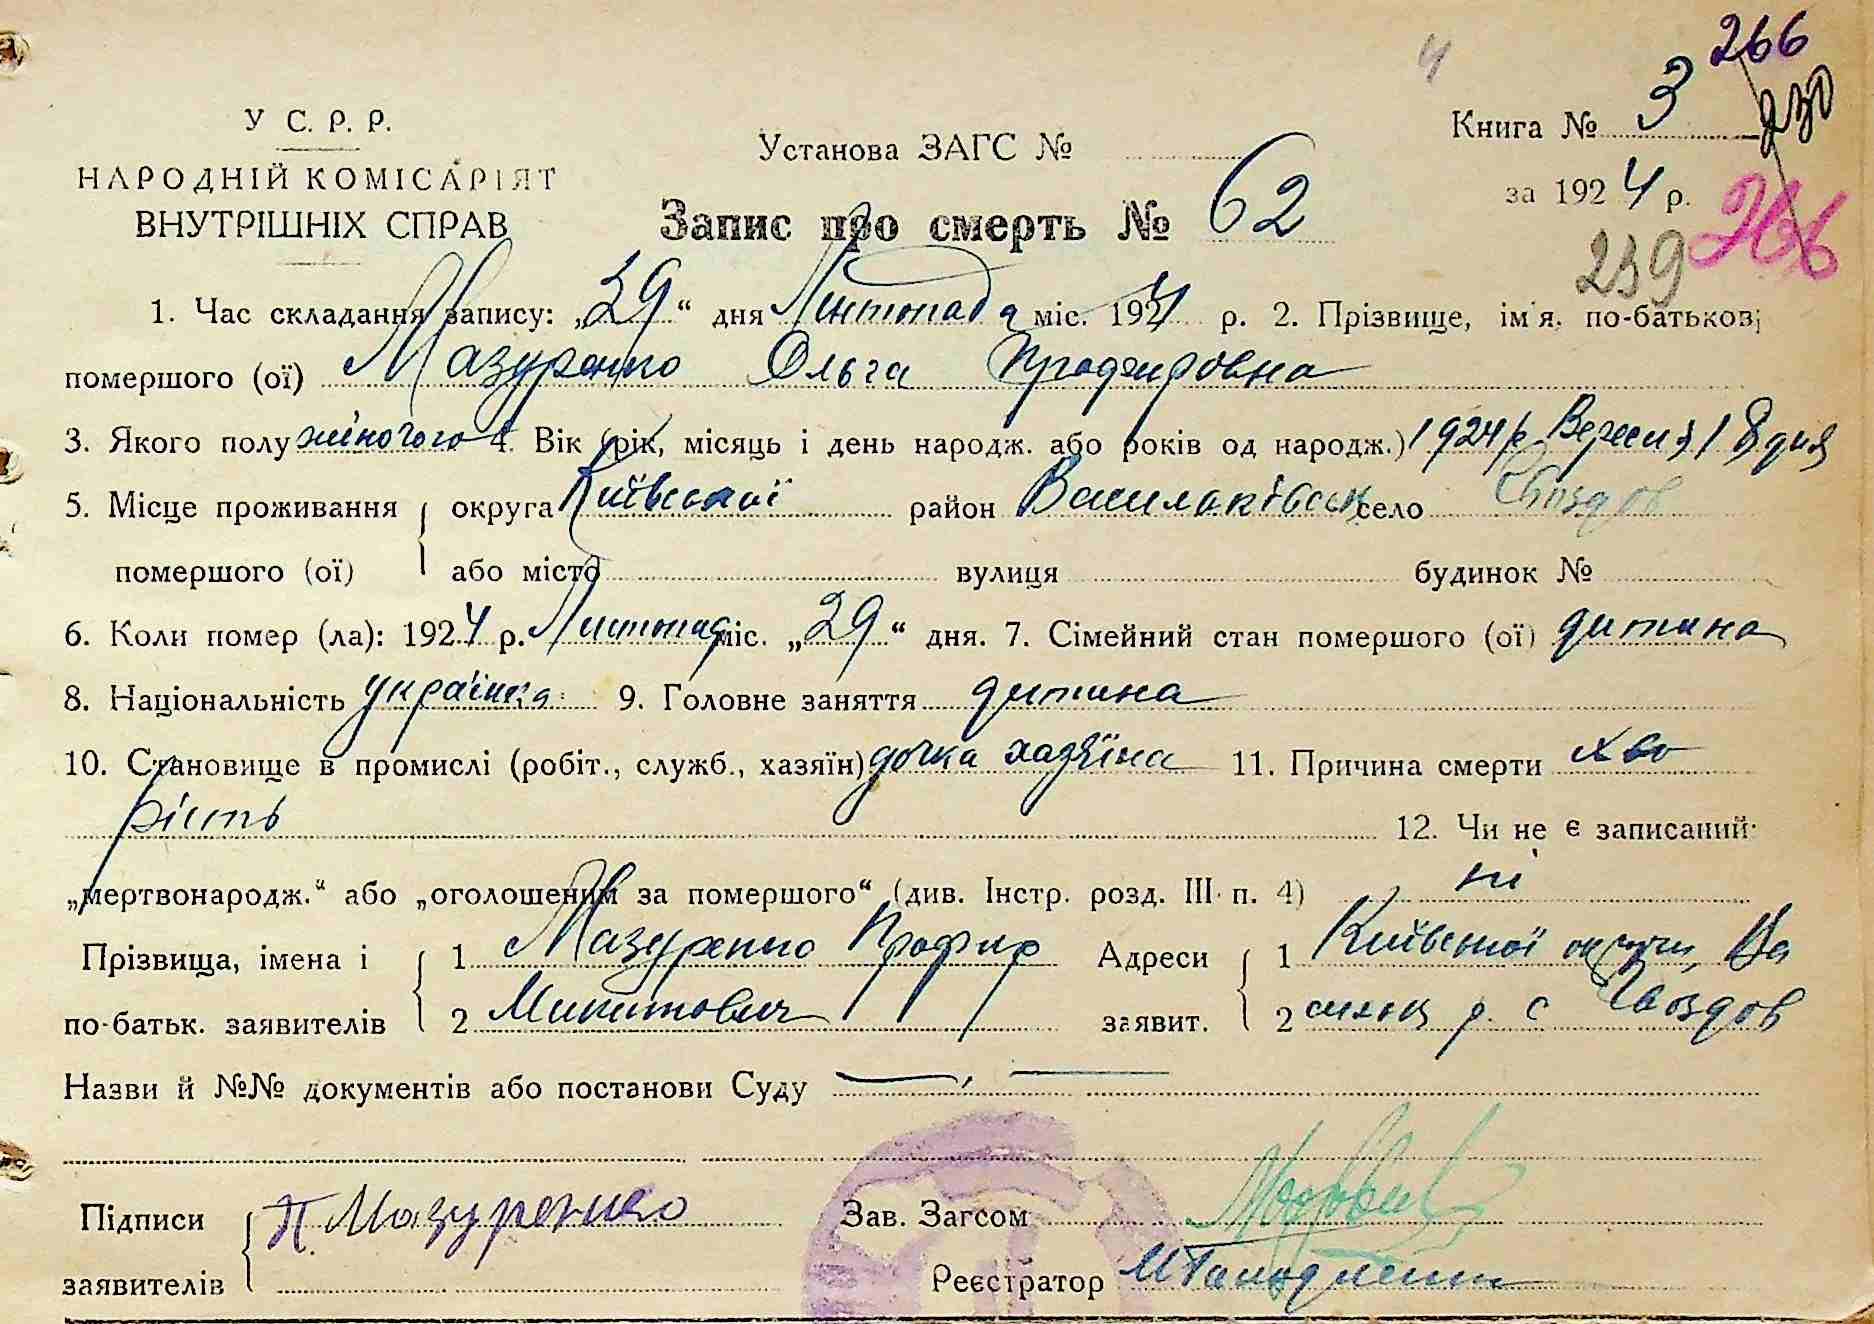 266
ч
230
У С. Р. Р.
НАРОДНІЙ КОМІСАРІЯТ
ВНУТРІШНІХ СПРАВ
Установа ЗАГС №
Книга № 3
за 1924 р.
Запис про смерть № 62
266
239
1. Час складання запису: „29“ дня Листопада міс. 1924 р. 2. Прізвище, ім'я, по-батькові
помершого (ої) Мазуренко Ольга Профировна
3. Якого полу жіночого 4. Вік (рік, місяць і день народж. або років од народж.) 1924 р. Вересня 18 дня
5. Місце проживання округа Київської район Васильківськ село Гвоздов
помершого (ої) або місто вулиця будинок №
6. Коли помер (ла): 1924 р. Листопад міс. „29“ дня. 7. Сімейний стан помершого (ої) дитина
8. Національність українка 9. Головне заняття дитина
10. Становище в промислі (робіт., служб., хазяїн) дочка хазяїна 11. Причина смерти хво
рість 12. Чи не є записаний:
„мертвонародж.“ або „оголошеним за помершого“ (див. Інстр. розд. III п. 4) ні
Прізвища, імена і 1 Мазуренко Профир Адреси 1 Київської округи, Ва
по-батьк. заявителів 2 Микитович заявит. 2 сильк р. с Гвоздов
Назви й №№ документів або постанови Суду
Підписи П. Мазуренко Зав. Загсом
заявителів Реєстратор